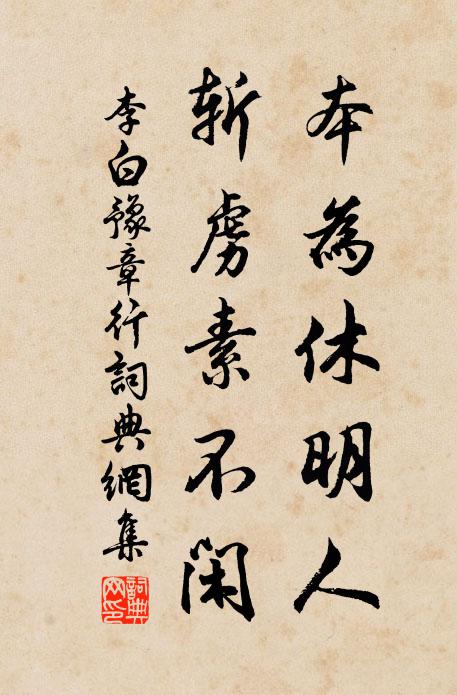 本為休明人
斬虜素不閑
李白豫章行詞典網集
詞典网印